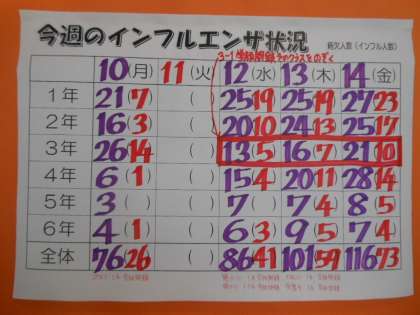 今週のインフルエンザ状況
病欠人数(インフル人数)
3-1 学級閉鎖 そのクラスをのぞく
10(月) 11(火) 12(水) 13(木) 14(金)
1年 21(7) ( ) 25(19) 25(19) 27(23)
2年 16(3) ( ) 20(10) 24(13) 25(17)
3年 26(14) ( ) 13(5) 16(7) 21(10)
4年 6(1) ( ) 15(4) 20(11) 28(14)
5年 3( ) ( ) 7( ) 7(4) 8(5)
6年 4(1) ( ) 6(3) 9(5) 7(4)
全体 76(26) ( ) 86(41) 101(59) 116(73)